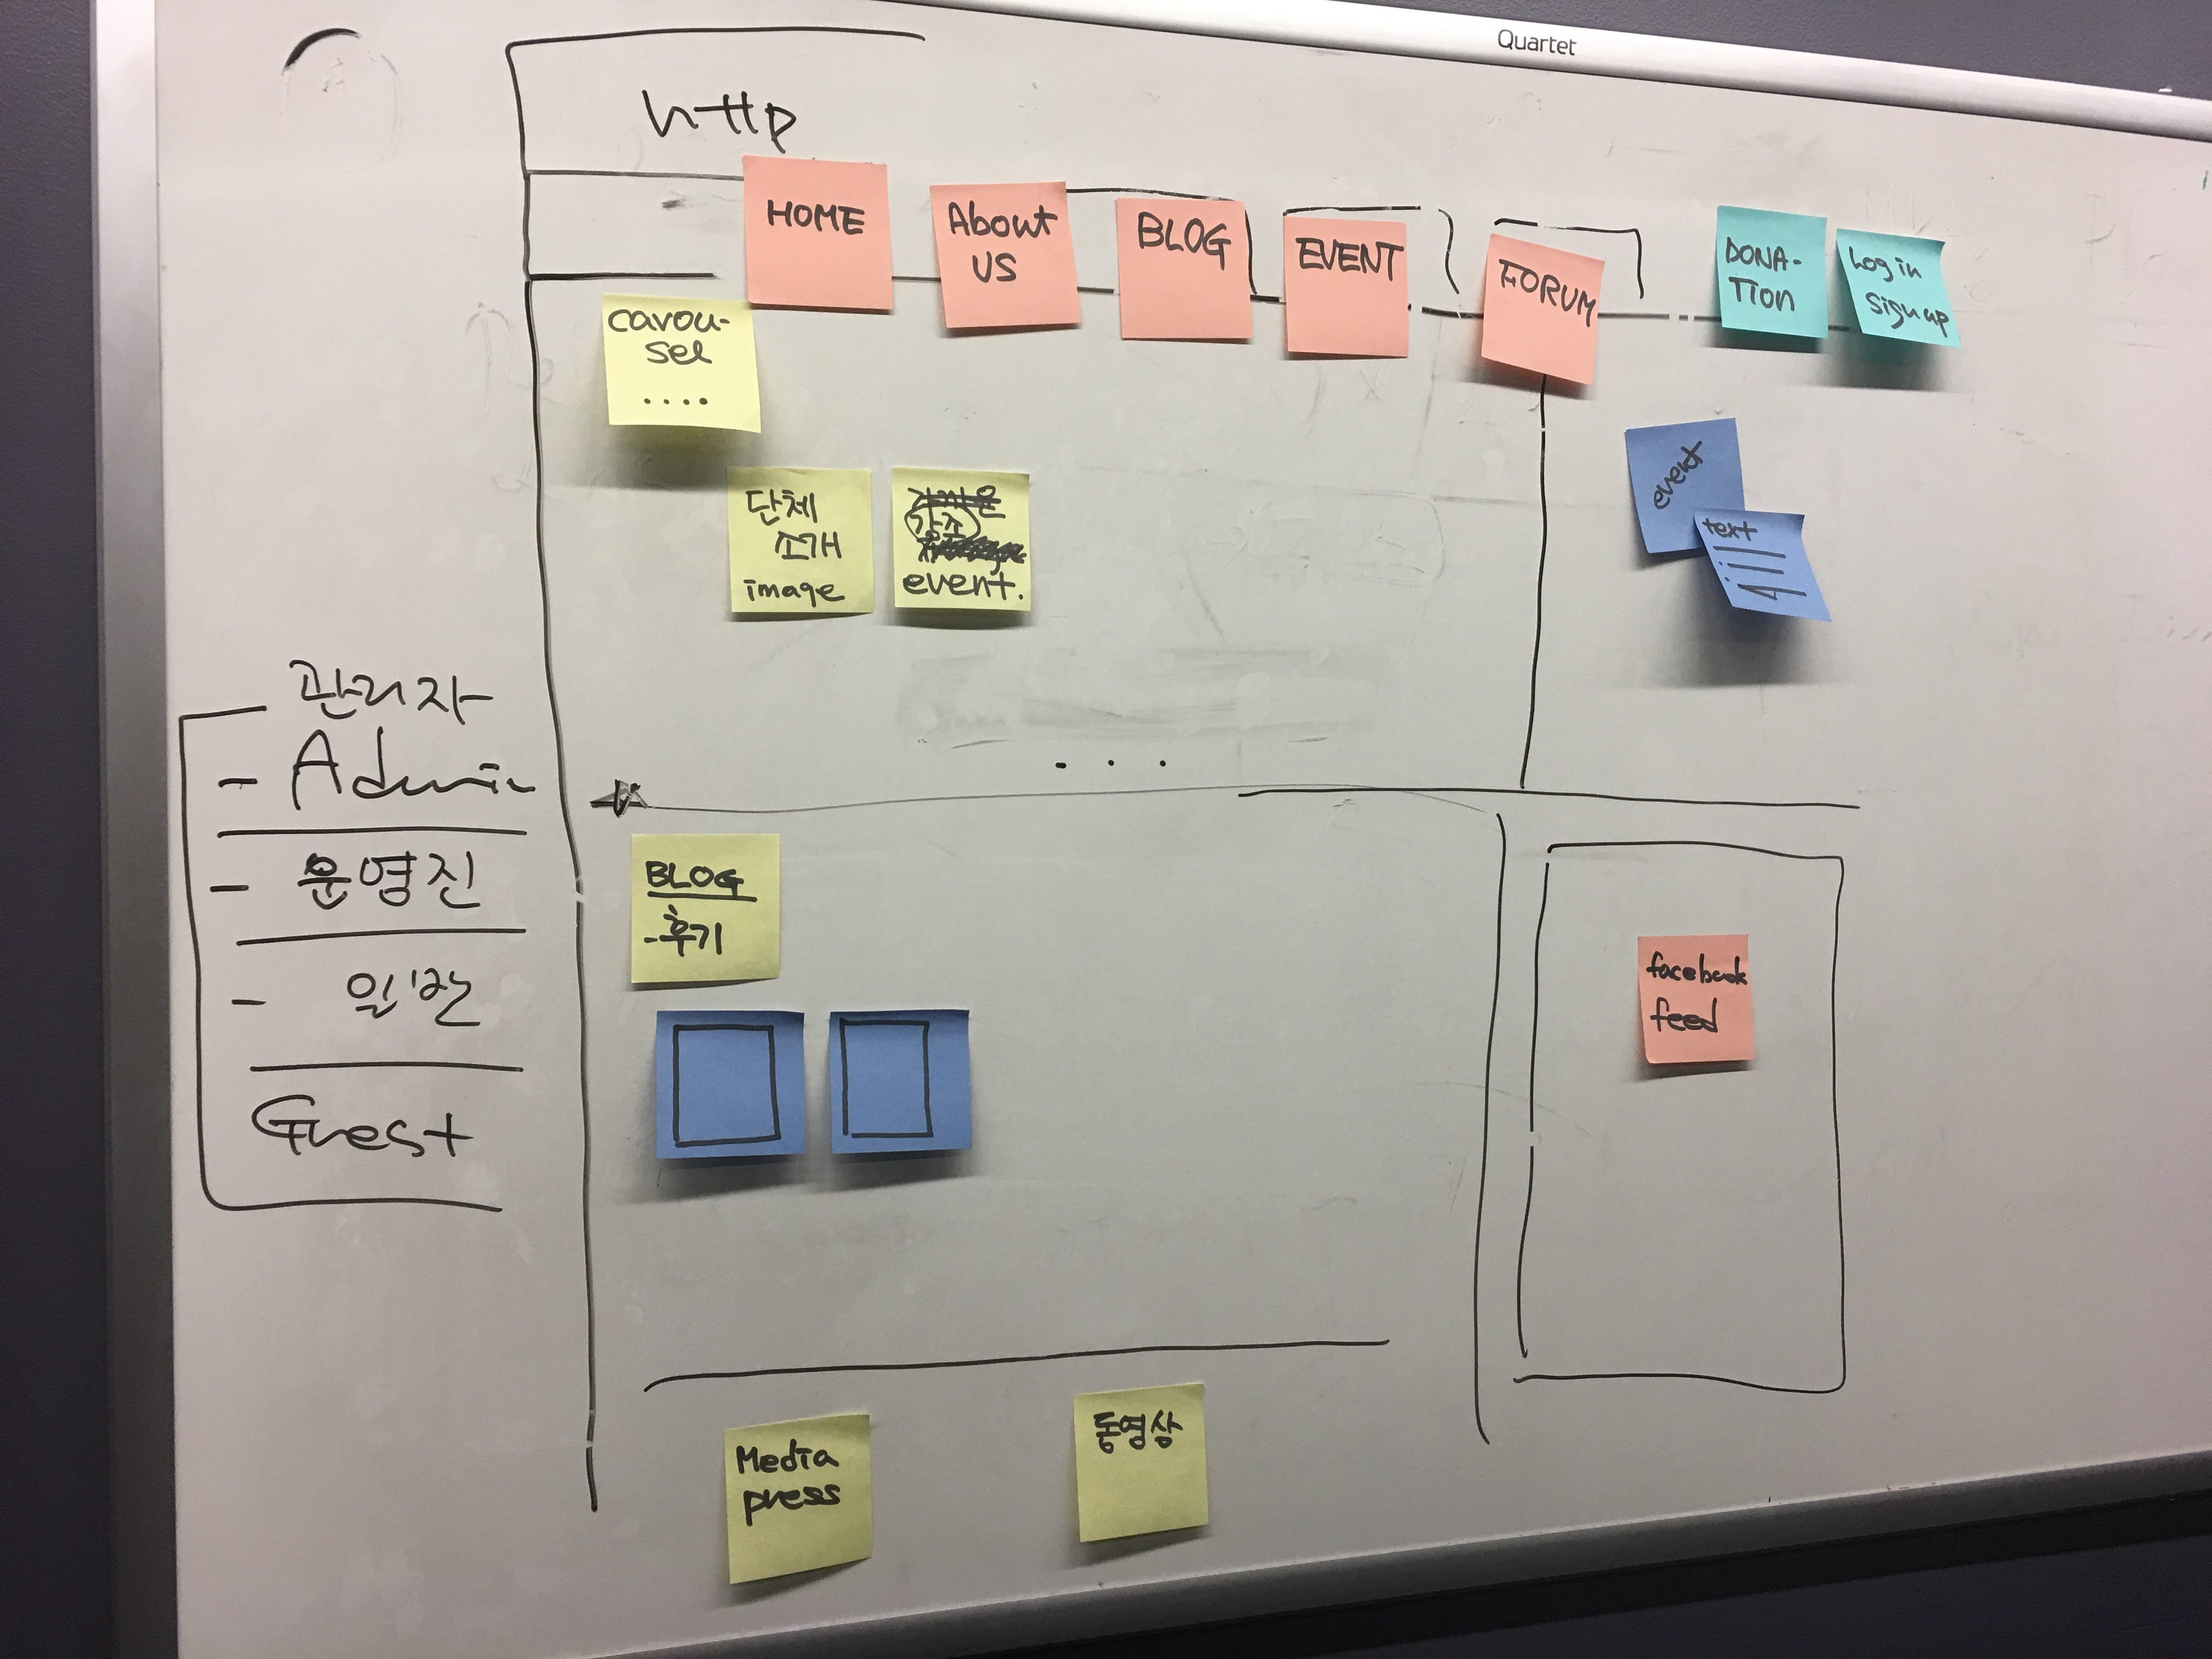 Quartet
http
HOME
About
US
BLOG
EVENT
FORUM
DONA-
TION
Log in
sign up
carou-
sel
....
단체
소개
image
강조
event.
event
text
...
관리자
- Admin
- 운영진
- 일반
Guest
BLOG
- 후기
facebook
feed
Media
press
동영상